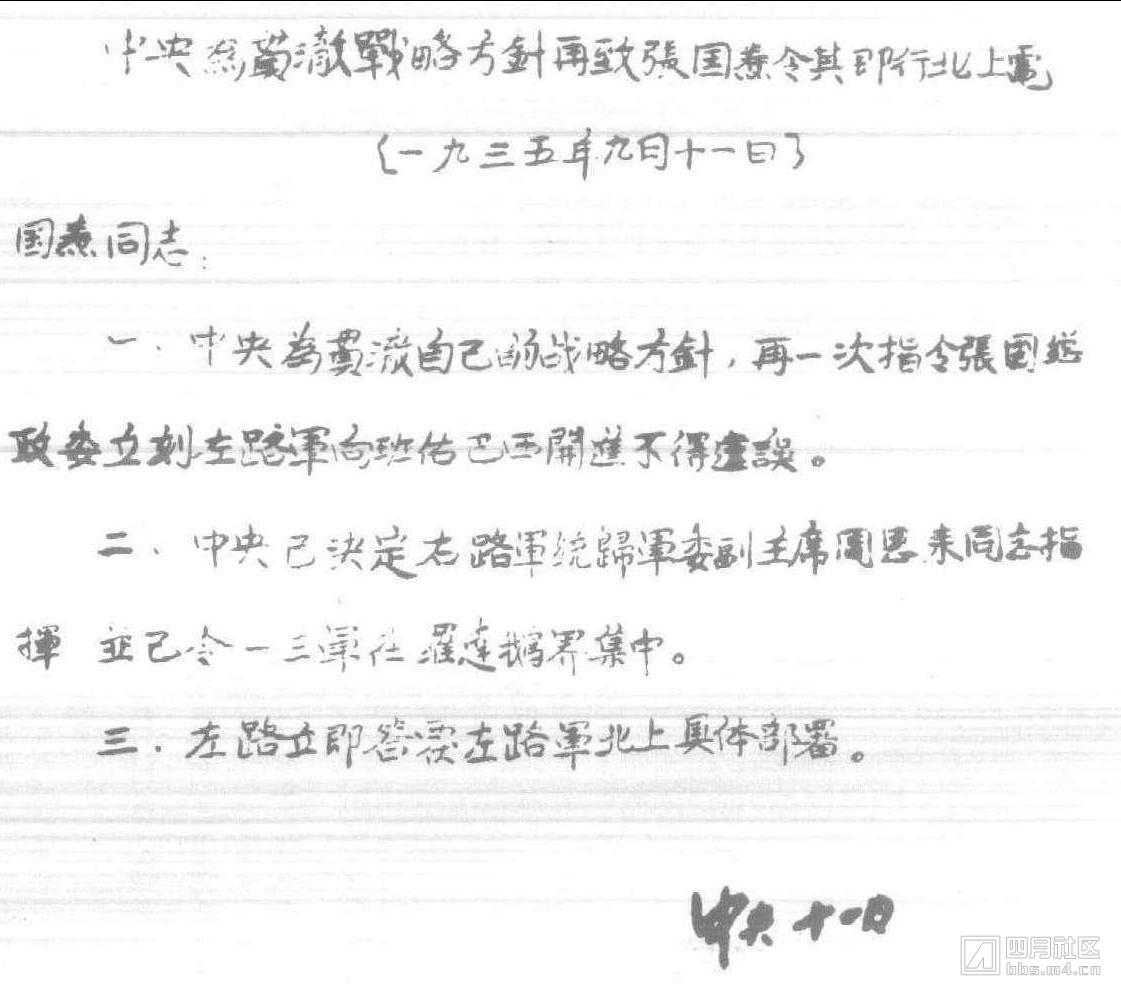 中央為貫澈戰略方針再致張国燾令其即行北上電
(一九三五年九月十一日)
国燾同志:
一、中央為貫澈自己的战略方針,再一次指令張国燾
政委立刻左路軍向班佑巴西開進不得違誤。
二、中央已決定右路軍統歸軍委副主席周恩来同志指
揮 並已令一三軍在羅達鵝界集中。
三.左路立即答覆左路軍北上具体部署。
中央 十一日
四月社区
bbs.m4.cn